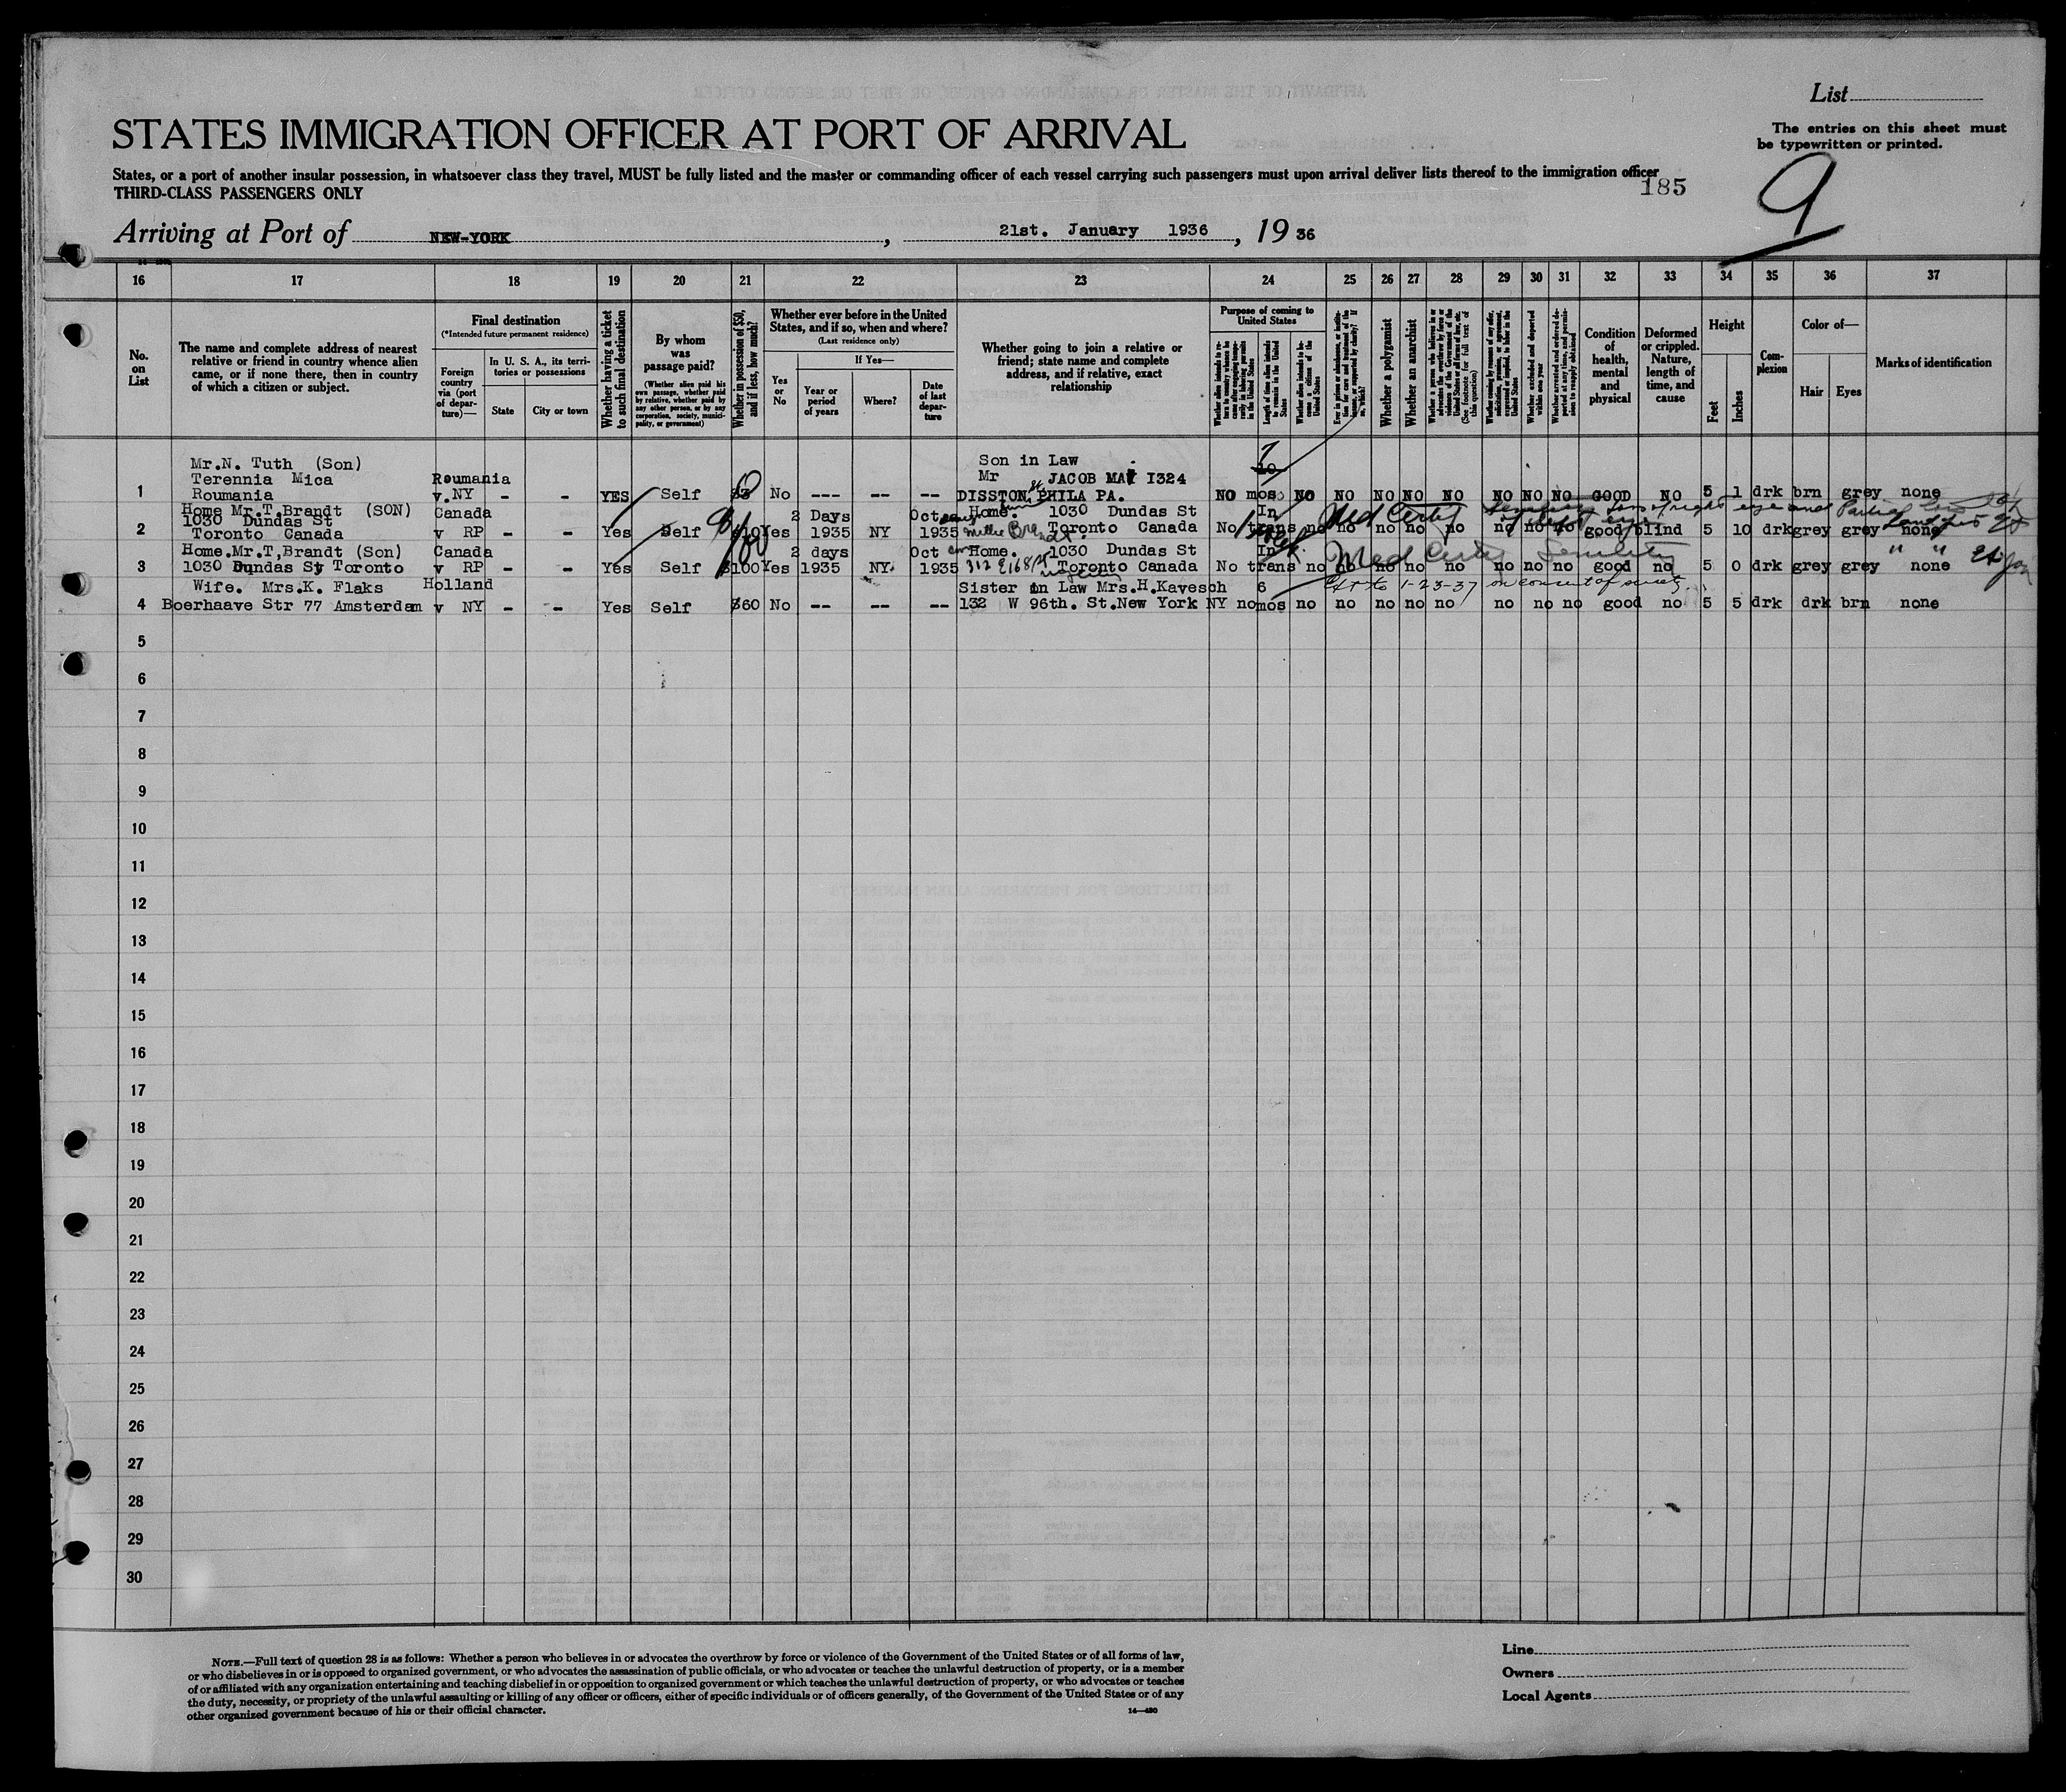 List
The entries on this sheet must
be typewritten or printed.
STATES IMMIGRATION OFFICER AT PORT OF ARRIVAL
States, or a port of another insular possession, in whatsoever class they travel, MUST be fully listed and the master or commanding officer of each vessel carrying such passengers must upon arrival deliver lists thereof to the immigration officer
THIRD-CLASS PASSENGERS ONLY
185
9
Arriving at Port of NEW-YORK, 21st. January 1936, 19 36
16 17 18 19 20 21 22 23 24 25 26 27 28 29 30 31 32 33 34 35 36 37
No. on List
The name and complete address of nearest relative or friend in country whence alien came, or if none there, then in country of which a citizen or subject.
Final destination
(*Intended future permanent residence)
Foreign country via (port of departure)—
In U. S. A., its territories or possessions
State
City or town
Whether having a ticket to such final destination
By whom was passage paid?
(Whether alien paid his own passage, whether paid by relative, whether paid by any other person, or by any corporation, society, municipality, or government)
Whether in possession of $50, and if less, how much?
Whether ever before in the United States, and if so, when and where?
(Last residence only)
Yes or No
If Yes—
Year or period of years
Where?
Date of last departure
Whether going to join a relative or friend; state name and complete address, and if relative, exact relationship
Purpose of coming to United States
Length of time alien intends to remain in the United States
Whether alien intends to become a citizen of the United States
Whether a polygamist
Whether an anarchist
(See footnote for full text of this question)
Whether excluded and deported within one year
Condition of health, mental and physical
Deformed or crippled. Nature, length of time, and cause
Height
Feet
Inches
Complexion
Color of—
Hair
Eyes
Marks of identification
Mr.N. Tuth (Son) Son in Law
Terennia Mica Roumania Mr JACOB MAY I324
1 Roumania v.NY - - YES Self No --- -- -- DISSTON St PHILA PA. NO mos NO NO NO NO NO NO NO NO GOOD NO 5 1 drk brn grey none
Home Mr.T.Brandt (SON) Canada 2 Days Oct Home. 1030 Dundas St In
1030 Dundas St
2 Toronto Canada v RP - - Yes Self Yes 1935 NY 1935 Toronto Canada No trans no no no no no no no no good blind 5 10 drk grey grey none
Med Certif
Home.Mr.T,Brandt (Son) Canada 2 days Oct Home. 1030 Dundas St In
3 1030 Dundas St Toronto v RP - - Yes Self $100 Yes 1935 NY. 1935 Toronto Canada No trans no no no no no no no no good no 5 0 drk grey grey none
Med Certif Senility
Wife. Mrs.K. Flaks Holland Sister in Law Mrs.H.Kavesch 6
4 Boerhaave Str 77 Amsterdam v NY - - Yes Self $60 No -- -- -- 132 W 96th. St.New York NY no mos no no no no no no no no good no 5 5 drk drk brn none
5
6
7
8
9
10
11
12
13
14
15
16
17
18
19
20
21
22
23
24
25
26
27
28
29
30
NOTE.—Full text of question 28 is as follows: Whether a person who believes in or advocates the overthrow by force or violence of the Government of the United States or of all forms of law,
or who disbelieves in or is opposed to organized government, or who advocates the assassination of public officials, or who advocates or teaches the unlawful destruction of property, or is a member
of or affiliated with any organization entertaining and teaching disbelief in or opposition to organized government or which teaches the unlawful destruction of property, or who advocates or teaches
the duty, necessity, or propriety of the unlawful assaulting or killing of any officer or officers, either of specific individuals or of officers generally, of the Government of the United States or of any
other organized government because of his or their official character.
Line
Owners
Local Agents